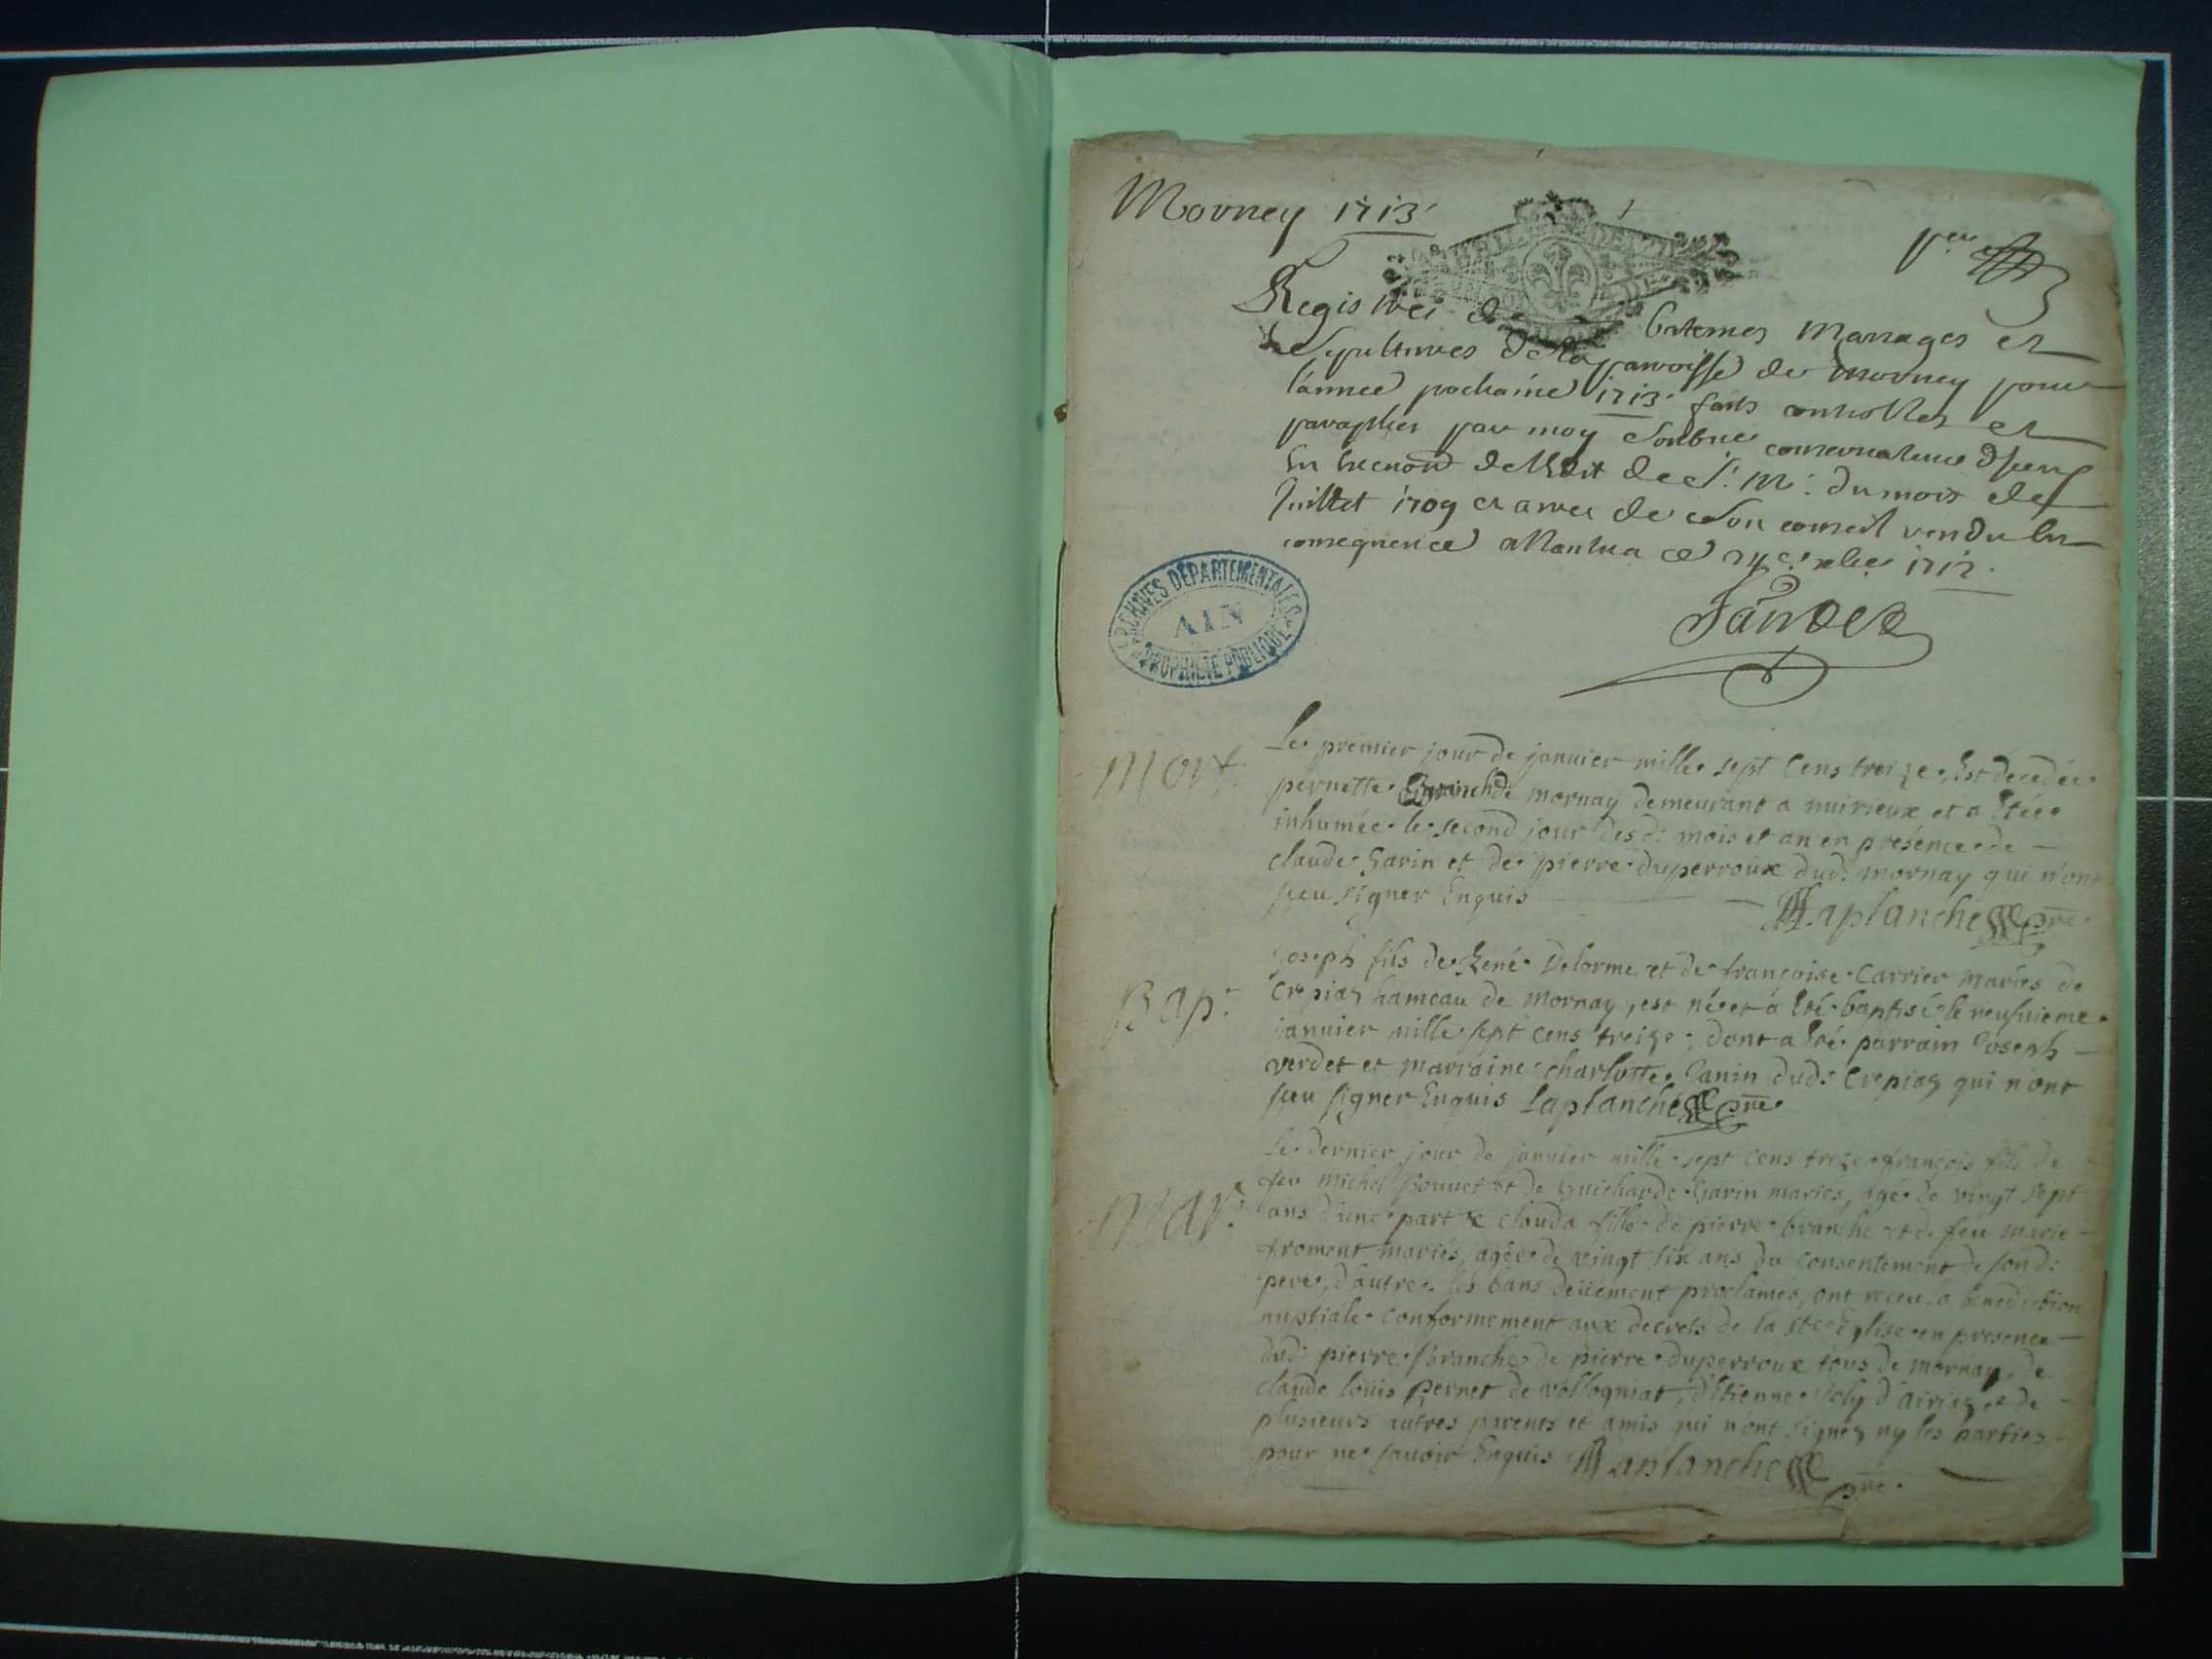 Mornay 1713
Registres de batemes mariages et
sepultures de la parroisse de mornay pour
l'année prochaine 1713 faits controllés et
paraphés par moy
de l'Edit de S. M. du mois de
Juillet 1709 et arrest de son conseil rendu En
consequence a Nantua ce 1712
ARCHIVES DEPARTEMENTALES
AIN
PROPRIETE PUBLIQUE
Mort.
Le premier jour de janvier mille sept cens treize, Est decedée
pernette de mornay demeurant a nuirieux et a Etée
inhumée le second jour desd. mois et an en présence de
claude Garin et de pierre duperroux dud. mornay qui n'ont
sceu signer Enquis
Laplanche pre
Bap.
Joseph fils de René Delorme et de françoise Carrier mariés de
Crepiaz hameau de mornay, est né et a Eté baptisé le neufvieme
janvier mille sept cens treize; dont a Eté parrain Joseph
verdet et marraine charlotte Janin dud. Crepiaz qui n'ont
sceu signer Enquis Laplanche pre
Mar.
Le dernier jour de janvier mille sept cens treize françois fils de
feu michel et de Guicharde Garin mariés, agé de vingt sept
ans d'une part & clouda fille de pierre branche et de feu marie
froment mariés, agée de vingt six ans du consentement de sond.
pere, d'autre. les bans deüement proclamés, ont receu la benediction
nuptiale conformement aux decrets de la Ste Eglise en presence
dud. pierre Branche de pierre duperroux tous de mornay, de
claude loüis pernet de vollogniat, d'Etienne Joly d'airiaz et de
plusieurs autres parents et amis qui n'ont signez ny les parties
pour ne savoir Enquis Laplanche pre.